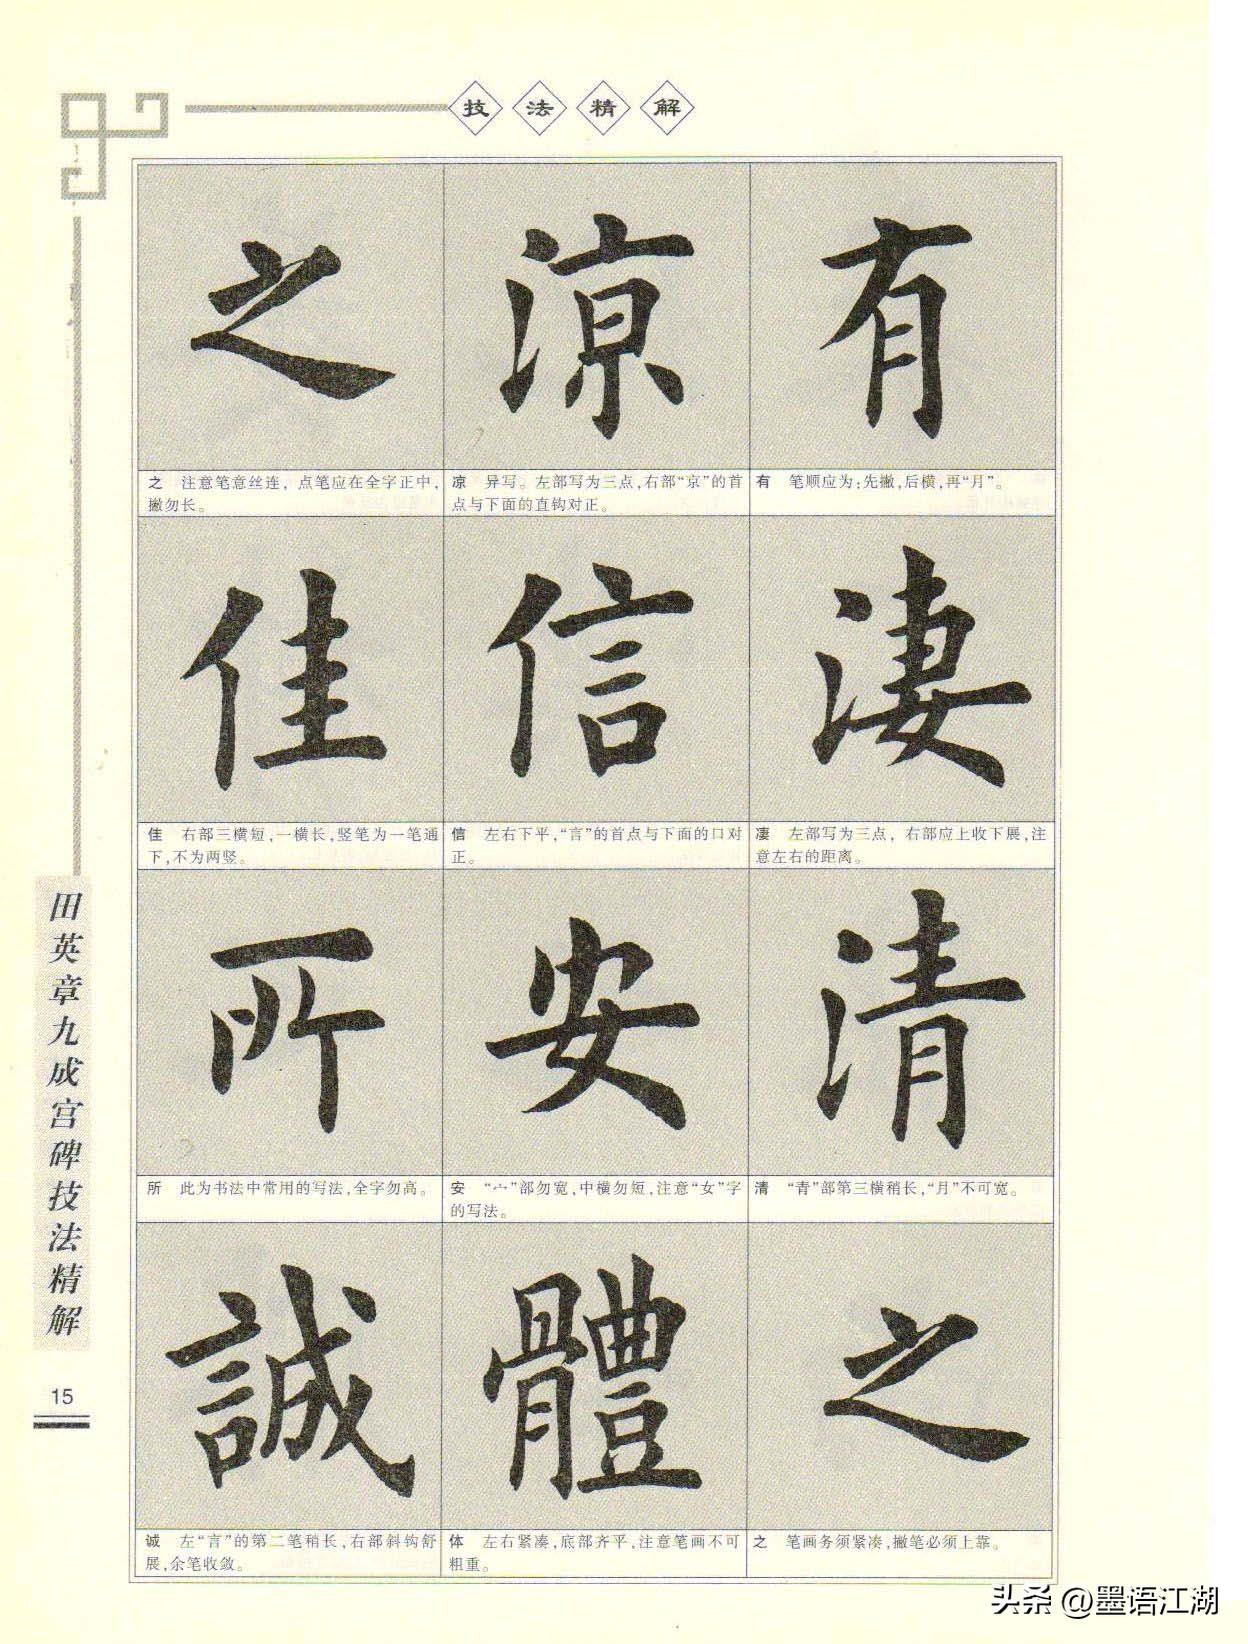 技法精解
之 凉 有
之 注意笔意丝连，点笔应在全字正中，
撇勿长。
凉 异写。左部写为三点，右部“京”的首
点与下面的直钩对正。
有 笔顺应为：先撇，后横，再“月”。
佳 信 淒
佳 右部三横短，一横长，竖笔为一笔通
下，不为两竖。
信 左右下平，“言”的首点与下面的口对
正。
凄 左部写为三点，右部应上收下展，注
意左右的距离。
所 安 清
所 此为书法中常用的写法，全字勿高。
安 “宀”部勿宽，中横勿短，注意“女”字
的写法。
清 “青”部第三横稍长，“月”不可宽。
誠 體 之
诚 左“言”的第二笔稍长，右部斜钩舒
展，余笔收敛。
体 左右紧凑，底部齐平，注意笔画不可
粗重。
之 笔画务须紧凑，撇笔必须上靠。
田英章九成宫碑技法精解
15
头条 @墨语江湖